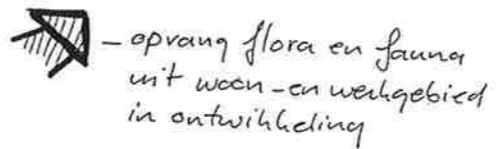 - opvang flora en fauna
uit woon-en werkgebied
in ontwikkeling